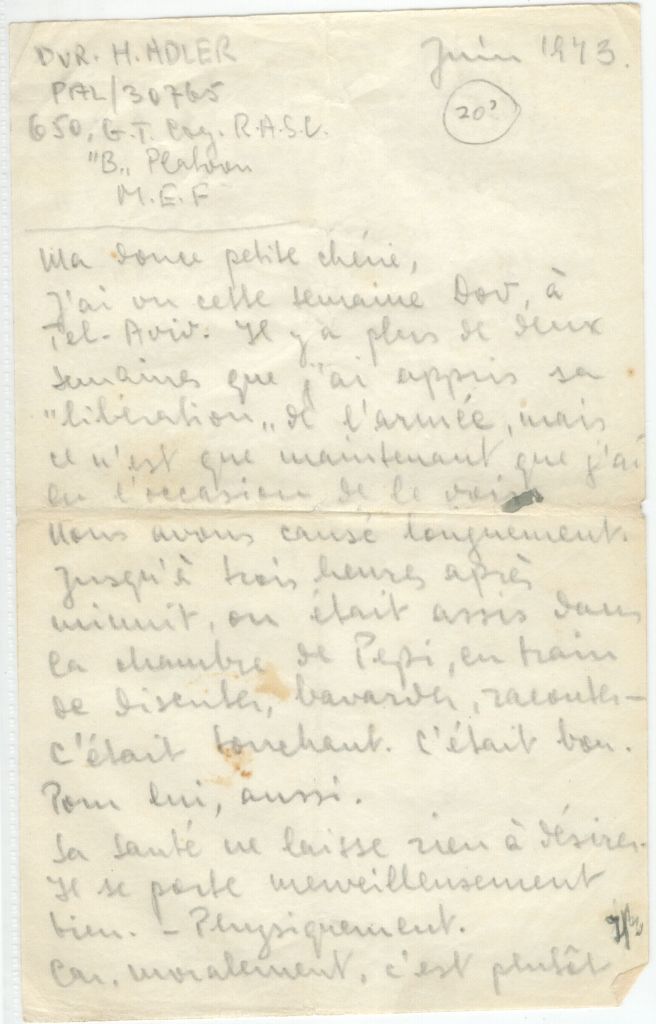 DVR. H. ADLER
Juin 1943.
PAL/30765
20³
650, G.T. Coy. R.A.S.C.
"B„ Platoon
M.E.F
Ma douce petite chérie,
J'ai vu cette semaine Dov, à
Tel-Aviv. Il y a plus de deux
semaines que j'ai appris sa
"libération„ de l'armée, mais
ce n'est que maintenant que j'ai
eu l'occasion de le voir.
Nous avons causé longuement.
Jusqu'à trois heures après
minuit, on était assis dans
la chambre de Pepi, en train
de discuter, bavarder, raconter –
c'était touchant. C'était bon.
Pour lui, aussi.
Sa santé ne laisse rien à désirer.
Il se porte merveilleusement
bien. – Physiquement.
Car, moralement, c'est plutôt